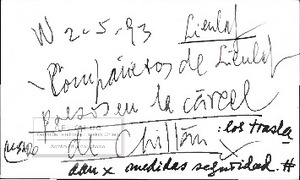 W 2-5-93 Lienlaf
Compañeros de Lienlaf
presos en la cárcel
de Chillán : los trasla
dan x medidas seguridad. #